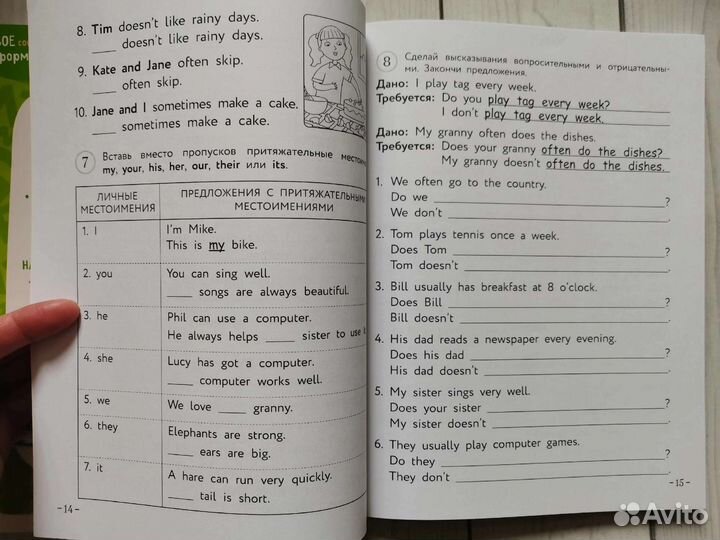 ВОЕ
форм
НА
8. Tim doesn't like rainy days.
____ doesn't like rainy days.
9. Kate and Jane often skip.
____ often skip.
10. Jane and I sometimes make a cake.
____ sometimes make a cake.
7 Вставь вместо пропусков притяжательные
my, your, his, her, our, their или its.
ЛИЧНЫЕ МЕСТОИМЕНИЯ
ПРЕДЛОЖЕНИЯ С ПРИТЯЖАТЕЛЬНЫМИ МЕСТОИМЕНИЯМИ
1. I
I'm Mike.
This is my bike.
2. you
You can sing well.
____ songs are always beautiful.
3. he
Phil can use a computer.
He always helps ____ sister to use it
4. she
Lucy has got a computer.
____ computer works well.
5. we
We love ____ granny.
6. they
Elephants are strong.
____ ears are big.
7. it
A hare can run very quickly.
____ tail is short.
-14-
8 Сделай высказывания вопросительными и отрицательны-
ми. Закончи предложения.
Дано: I play tag every week.
Требуется: Do you play tag every week?
I don't play tag every week.
Дано: My granny often does the dishes.
Требуется: Does your granny often do the dishes?
My granny doesn't often do the dishes.
1. We often go to the country.
Do we ____?
We don't ____
2. Tom plays tennis once a week.
Does Tom ____?
Tom doesn't ____
3. Bill usually has breakfast at 8 o'clock.
Does Bill ____?
Bill doesn't ____
4. His dad reads a newspaper every evening.
Does his dad ____?
His dad doesn't ____
5. My sister sings very well.
Does your sister ____?
My sister doesn't ____
6. They usually play computer games.
Do they ____?
They don't ____
-15-
Avito